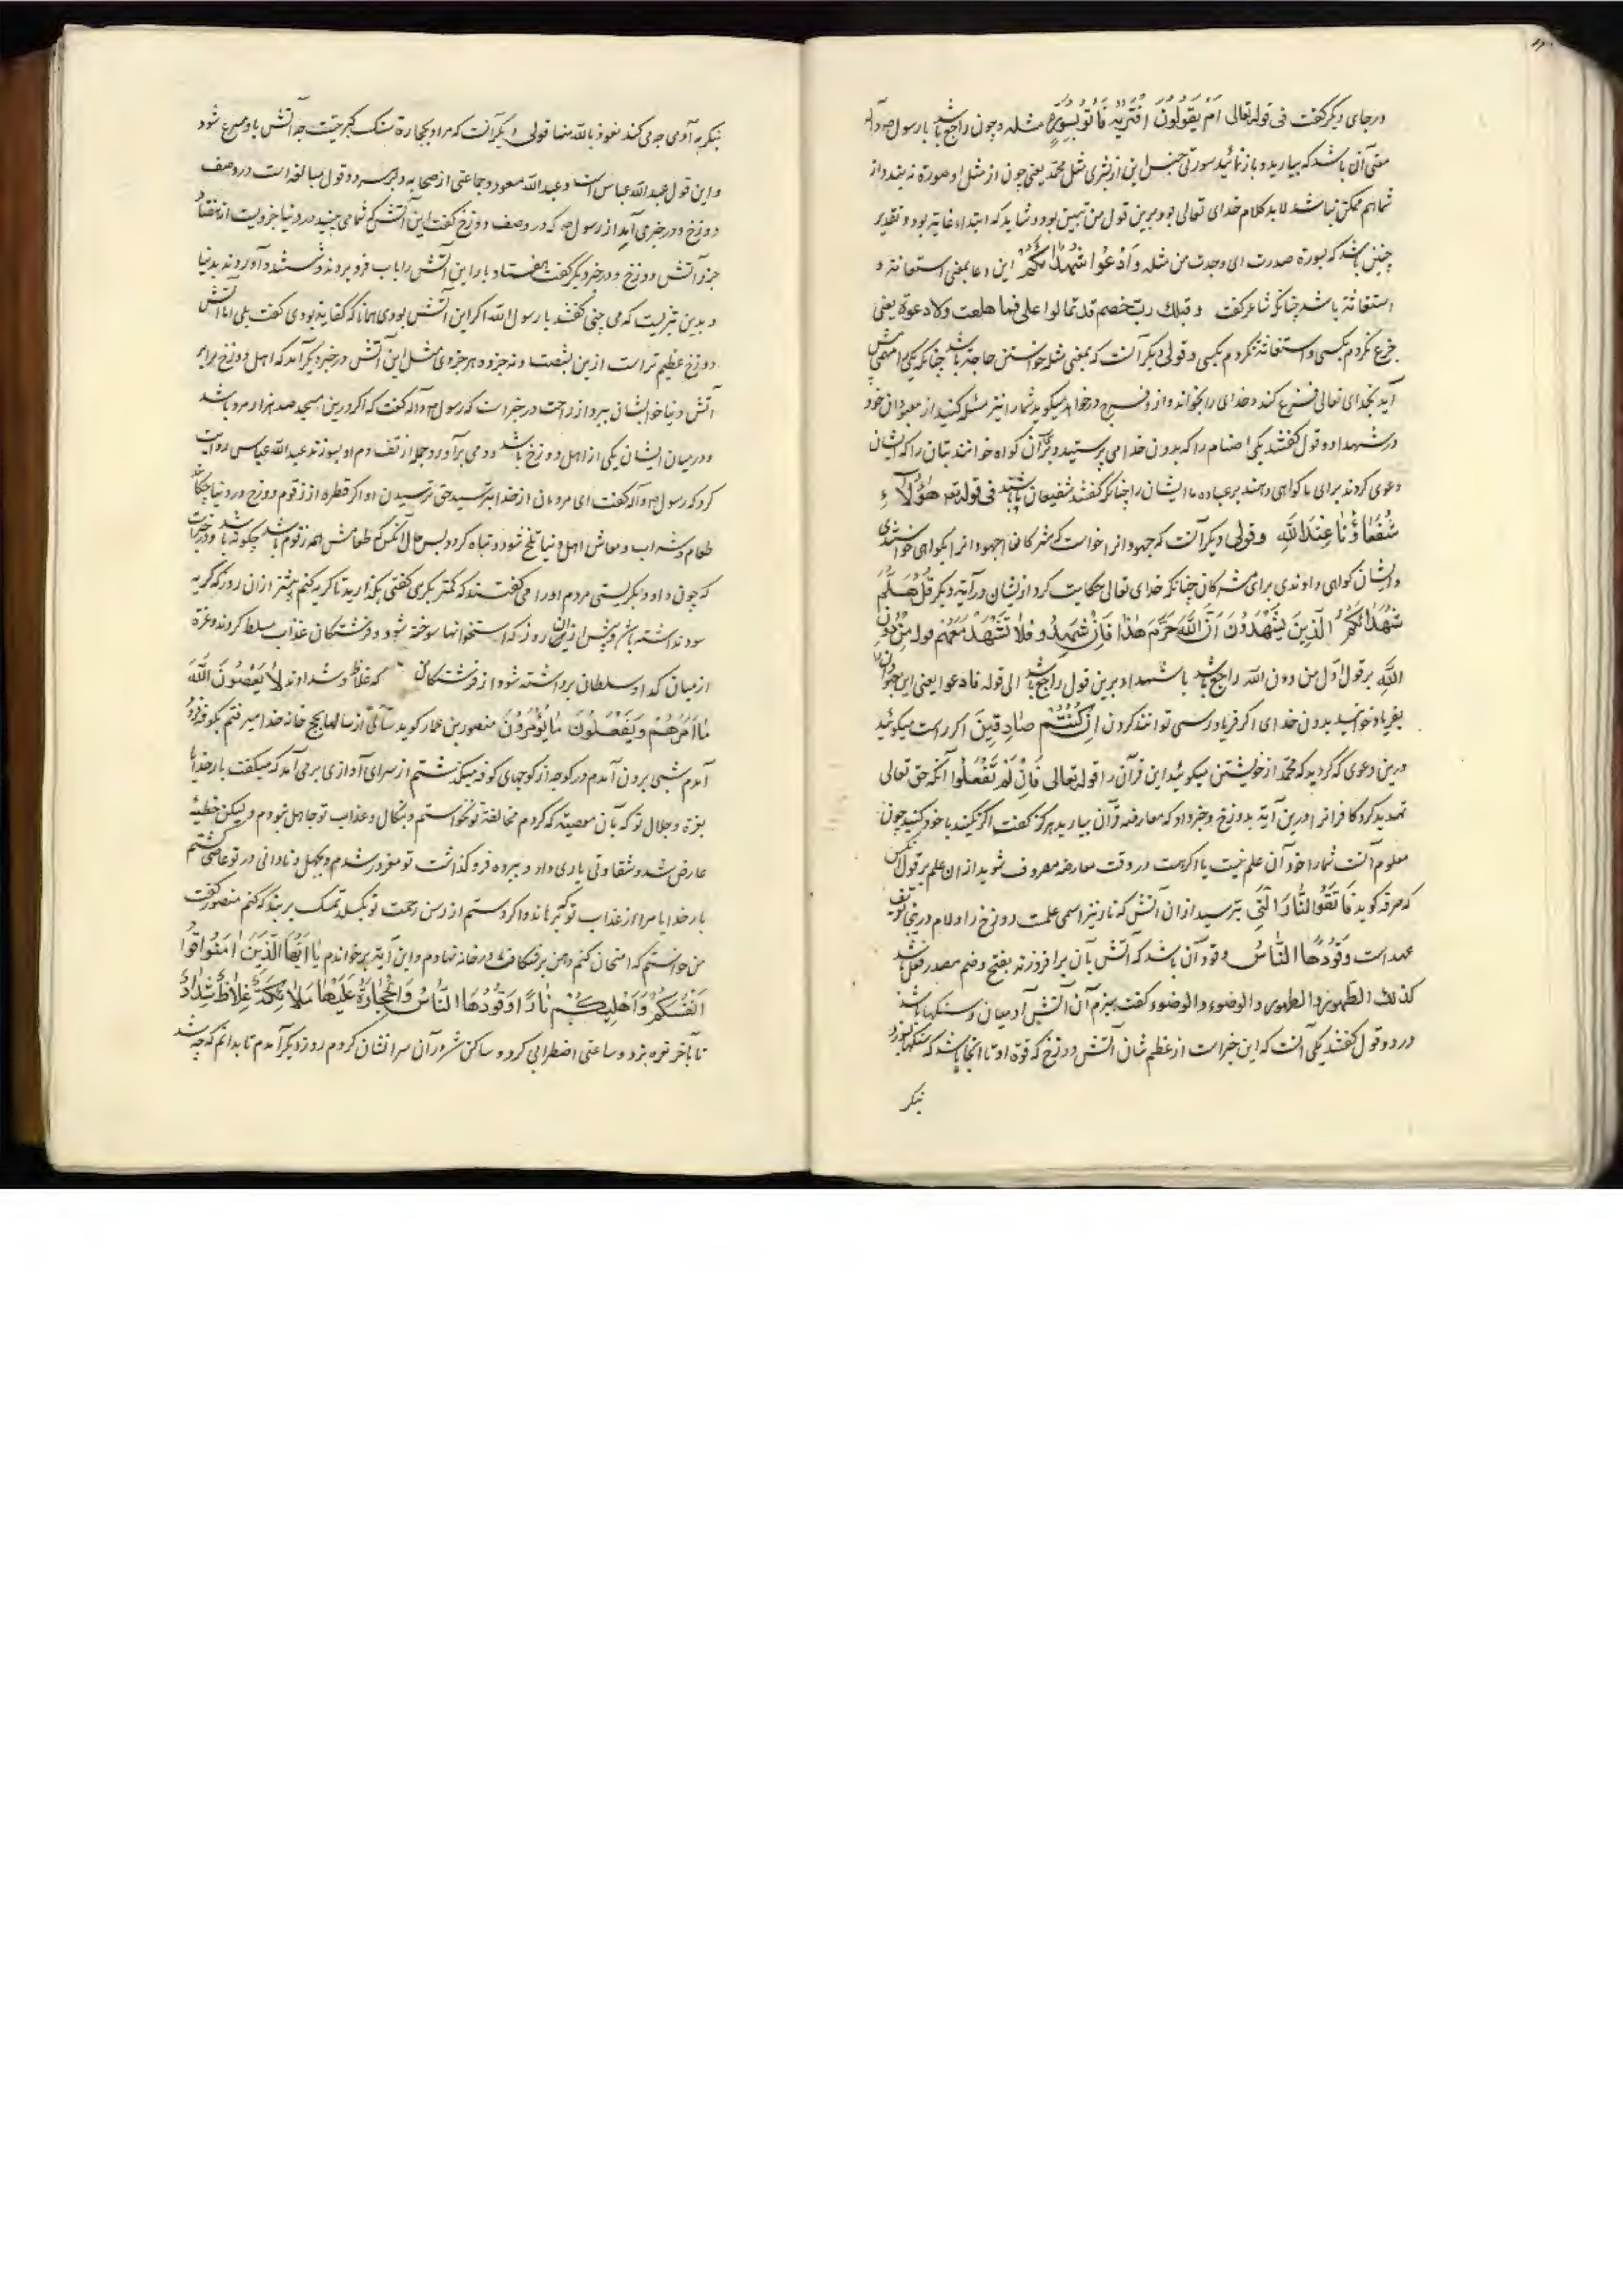 ورجای دیگر گفت فی قوله تعالی اَمْ یَقُولُونَ افْتَرَیهُ فَأْتُوا بِسُورَةٍ مثله و چون راجع باشد با رسول ص و آله
معنی آن باشد که بیارید و باز نمائید سورتی جنس این از بشری مثل محمد یعنی چون از مثل او صورة نه بندد از
شما هم ممکن نباشد لابد کلام خدای تعالی بود و برین قول من تبیین بود و شاید که ابتداء غایة بود و تقدیر
چنین باشد که بسورة صدرت ای وجدت من مثله وَادْعُوا شُهَدَاءَكُمْ این دعا بمعنی استعانة و
استغاثة باشد چنانکه شاعر گفت و قبلك رب خصم قد تمالوا علی فما هلعت ولا دعوة یعنی
جزع نکردم بکسی و استغاثة نکردم بکسی و قولی دیگر آنست که بمعنی مثله خواستن حاجة باشد چنانکه یکی را مهمی پیش
آید بخدای تعالی فزع کند و خدای را بخواند و ازو فرج درخواهد میگوید شما را نیز مسئله کنید از معبودان خود
در شهدا دو قول گفتند یکی اصنام را که بدون خدا می پرستید و قرآن گواه خوانند بتان را که ایشان
دعوی کردند برای ما گواهی دهند بر عبادة ما ایشان را چنانکه گفتند شفیعان باشند فی قوله تعـ هٰؤُلَاءِ
شُفَعَاؤُنَا عِنْدَ اللّٰهِ و قولی دیگر آنست که جهودانرا خواست که مشرکان جهودانرا بگواهی خواستندی
و ایشان گواهی دادندی برای مشرکان چنانکه خدای تعالی حکایت کرد ازیشان در آیة دیگر قُلْ هَلُمَّ
شُهَدَاءَكُمُ الَّذِینَ یَشْهَدُونَ اَنَّ اللّٰهَ حَرَّمَ هٰذَا فَاِنْ شَهِدُوا فَلَا تَشْهَدْ مَعَهُمْ قوله مِنْ دُونِ
اللّٰهِ بر قول اول من دون الله راجع باشد با شهدا و برین قول راجع باشد الی قوله فادعوا یعنی این جهودان را
بفریاد خوانید بدون خدای اگر فریاد رسی توانند کردن اِنْ كُنْتُمْ صَادِقِینَ اگر راست میگوئید
درین دعوی که کردید که محمد از خویشتن میگوید این قرآن را قوله تعالی فَاِنْ لَمْ تَفْعَلُوا آنکه حق تعالی
تهدید کرد کافرانرا درین آیة بدوزخ و خبر داد که معارضه قرآن بیارید هرگز گفت اگر نکنید با خود کنید چون
معلوم آنست شما را خود آن علم نیست یا اگر هست در وقت معارضه مصروف شوید از ان علم بر قول آنکس
که صرفه گوید فَاتَّقُوا النَّارَ الَّتِی بترسید از ان آتش که نار نیز اسمی علمست دوزخ را و لام درین تعریف
عهد است وَقُودُهَا النَّاسُ وقود آن باشد که آتش بآن برافروزند بفتح و ضم مصدر فعل باشد
كذلك الطَهور و الطُهور و الوَضوء و الوُضوء گفت هیزم آن آتش آدمیان و سنگها باشد
درو دو قول گفتند یکی آنست که این خبر است از عظیم شأن آتش دوزخ که قوة او تا آنجا باشد که سنگها بسوزد
بنگر
بنگر به آدمی چه می کند نعوذ بالله منها قولی دیگر آنست که مراد بحجارة سنگ کبریتست چه آتش باو سریع شود
و این قول عبدالله عباس است و عبدالله مسعود و جماعتی از صحابه و بر هر دو قول مبالغه است در وصف
دوزخ و در خبر می آید از رسول ص که در وصف دوزخ گفت این آتش که شما می بینید در دنیا جزویست از هفتاد
جزو آتش دوزخ و در خبر دیگر گفت هفتاد بار این آتش را باب فرو بردند و شستند و آوردند بدنیا
و بدین تیزیست که می بینی گفتند یا رسول الله اگر این آتش بودی همانا که کفایة بودی گفت بلی اما آتش
دوزخ عظیم تر است ازین بشصت و نه جزو و هر جزوی مثل این آتش در خبر دیگر آمد که اهل دوزخ را بر
آتش دنیا خوابشان ببرد از راحت در خبر است که رسول ص و آله گفت که اگر درین مسجد صد هزار مرد باشد
و در میان ایشان یکی از اهل دوزخ باشد و دمی برآورد جمله از تف دم او بسوزند عبدالله عباس روایت
کرد که رسول ص و آله گفت ای مردمان از خدا بترسید حق ترسیدن او اگر قطره از زقوم دوزخ در دنیا چکاند
طعام و شراب و معاش اهل دنیا تلخ شود و تباه گردد پس حال آنکس که طعامش همه زقوم باشد چگونه باشد و در خبر است
که چون داود بگریستی مردم اورا می گفتند که کمتر بگری گفتی بگذارید تا گریه کنم پیشتر از ان روز که گریه
سود نداشته باشم و پیش از آن روز که استخوانها سوخته شود و فرشتگان عذاب مسلط گردند و غرة
از میان گدا و سلطان برداشته شود از فرشتگان که غلاظ و شداد اند لَا یَعْصُونَ اللّٰهَ
مَا اَمَرَهُمْ وَیَفْعَلُونَ مَا یُؤْمَرُونَ منصور بن عمار گوید سالی از سالها بحج خانه خدا میرفتم بکوفه فرود
آمدم شبی برون آمدم در کوچه از کوچهای کوفه میگذشتم از سرای آوازی برمی آمد که میگفت بار خدایا
بعزة و جلال تو که بآن معصیة که کردم مخالفة تو نخواستم و بنکال و عذاب تو جاهل نبودم ولیکن خطیئة
عارض شد و شقاوتی یاری داد و پرده فرو گذاشت تو مغرور شدم و بجهل و نادانی در تو عاصی گشتم
بار خدایا مرا از عذاب تو که برهاند و اگر دستم از رسن رحمت تو بگسلد تمسک بر بند که کنم منصور گفت
من خواستم که امتحان کنم دهن بر شکاف در خانه نهادم و این آیة بر خواندم یَا اَیُّهَا الَّذِینَ اٰمَنُوا قُوا
اَنْفُسَكُمْ وَاَهْلِیكُمْ نَارًا وَقُودُهَا النَّاسُ وَالْحِجَارَةُ عَلَیْهَا مَلَائِكَةٌ غِلَاظٌ شِدَادٌ
تا بآخر نعره بزد و ساعتی اضطرابی کرد و ساکن شد و آن سرا نشان کردم روز دیگر آمدم تا بدانم که چه شد